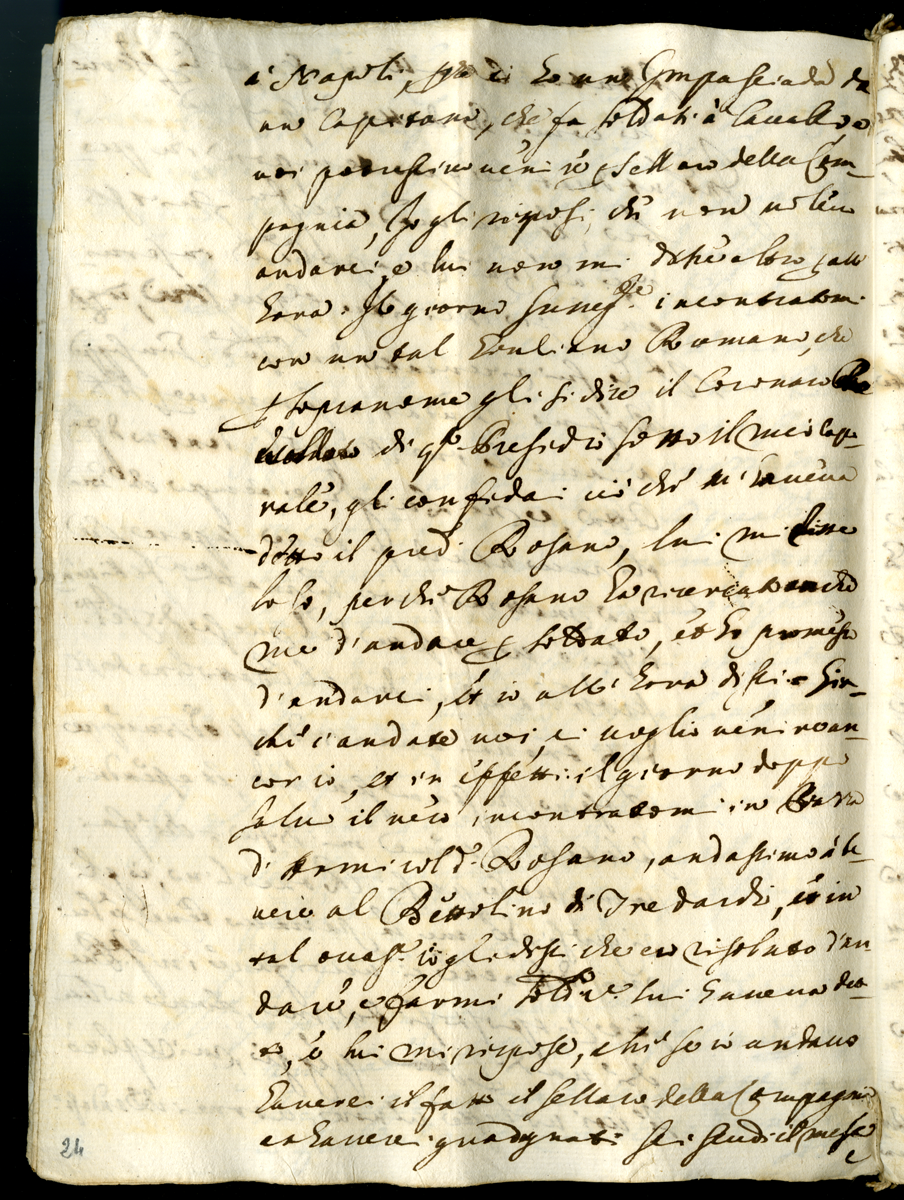 à Napoli, io ho una Impasciada da
un Capitano, che fa soldati à Cavallo, e
voi potressivo venirci p Sellaro della Com-
pagnia, Io gli risposi, che non volevo
andarci, e lui non mi disse altro p all'
hora. Il giorno sussegte. incontratomi
con un tal Giuliano Romano, che
p sopranome gli si dice il Coronaro
di qto. Presidio sotto il mio Capo-
rale, gli confidai ciò che m'haveva
detto il pred. Rosano, lui mi disse
lo so, perche Rosano ha ricercato anche
me d'andare p soldato, et ho promesso
d'andarci, et io all'hora dissi Giac-
che ci andate voi, ci voglio venire an-
cor io, et in effetti il giorno doppo
salvo il vero, incontratomi in Piazza
d'Armi col d. Rosano, andassimo à be-
vere al Bettolino di Tre dardi, et in
tal congr. io gli dissi che ero risoluto d'an
darci, e farmi soldto. lui haveva det-
to, e lui mi rispose, che se io andavo
haverei il fatto il sellaro della Compagnia
e haverei guadagnati sei scudi il mese
e
24